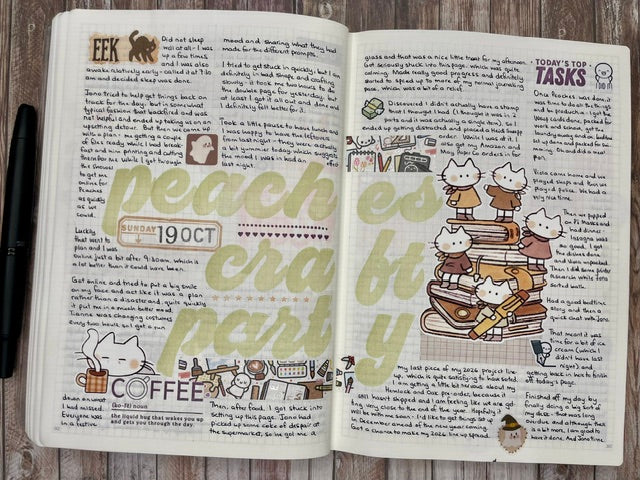 EEK
Did not sleep
well at all - I was
up a few times
and I was also
awake relatively early - called it at 7:30
am and decided sleep was done.
Jono tried to help get things back on
track for the day, but in somewhat
typical fashion that backfired and was
not helpful and ended up taking us on an
upsetting detour. But then we came up
with a plan - me getting a couple
of files ready while I was break-
fast and him printing and cutting
them for me while I got through
the showers
to get me
online for
Peaches
as quickly
as we
could.
Luckily
that went to
plan and I was
online just a bit after 9:30am, which is
a lot better than it could have been.
Got online and tried to put a big smile
on my face and act like it was a plan
rather than a disaster and, quite quickly
it put me in a much better mood.
Tianne was changing costumes
every two hours, so I got a fun
COFFEE
(ko-fē) noun
the liquid hug that wakes you up
and gets you through the day.
down on what
I had missed.
Everyone was
in a festive
mood and sharing what they had
made for the different prompts.
I tried to get stuck in quickly, but I am
definitely in bad shape and crafting
slowly - it took me two hours to do
the double page for yesterday, but
at least I got it all out and done and
I definitely felt better for it.
Took a little pause to have lunch and
was happy to have the leftovers
from last night - they were actually
a bit yummier today, which suggests
the mood I was in had an effect
last night.
SUNDAY 19 OCT
peaches
craft
party
Then, after food, I got stuck into
setting up this page. Jono had
picked up some coke of despair at
the supermarket, so he got me a
glass and that was a nice little treat for my afternoon.
Got seriously stuck into this page, which was quite
calming. Made really good progress and definitely
started to speed up to more of my normal journaling
pace, which was a bit of a relief.
Discovered I didn't actually have a stamp
that I thought I had (I thought it was in 2
parts and it was actually a single one), so I
ended up getting distracted and placed a Heidi Swapp
order. While I was at it, I
also got my Amazon and
May Kap Co orders in for
my last piece of my 2026 project line
up, which is quite satisfying to have sorted.
I am getting a little bit nervous about my
Hemlock and Oak pre-order, because it
still hasn't shipped and I am feeling like we are get-
ting very close to the end of the year. Hopefully it
will be with me soon - I'd like to get things set up
in December ahead of the new year coming.
Got a chance to make my 2026 line up spread
TODAY'S TOP
TASKS
I DID IT!
Once Peaches was done, it
was time to do all the chores
and be productive - I got the
Vocab cards done, packed up
the work and canvas, got the
laundry moving along, bedding
set up done and packed for swim-
ming. Oli and did a meal
plan.
Viola came home and we
played shops and then we
played police. We had a
very nice time.
Then we popped
on PJ Masks and
had dinner -
lasagna was
so good. I got
the dishes done
and Viola unpacked.
Then I did some printer
research while Jono
sorted bath.
Had a good bedtime
story and then a
quick chat with Jono.
That meant it was
time for a bit of ice
cream (which I
didn't have last
night) and
getting back in here to finish
off today's page.
Finished off my day by
finally doing a big sort of
my desk - that was long
overdue and although there
is a bit more, I am good to
have it done. And Jono time.